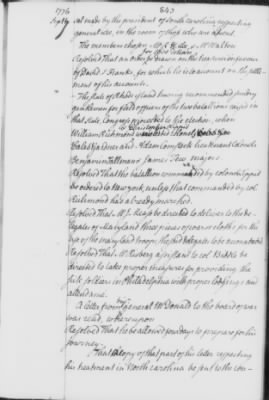 1776
343
Sept 7
cat made by the president of South carolina respecting
general Lee, in the room of those who are absent.
The members chosen Mr Wm Hooper Mr Walton
Resolved that an order for        dollars on the treasurer in favour
of David S Franks, for which he is to account on the settle
ment of his accounts.
The state of Rhode island having recommended sundry
gentlemen for field officers of the two battalions raised in
that state, Congress proceeded to the election, when
William Richmond and Christopher Lippit were elected colonels
Caleb Gardner and Adam Comstock lieutenant Colonels
Benjamin Tallman and James Tew majors
Resolved That the battalion commanded by colonel Lippit
be ordered to New york, unless that commanded by col
Richmond has already marched.
Resolved That Mr          be directed to deliver to the de-
legates of Maryland three pieces of coarse cloths for the
use of the maryland troops, the said delegates to be accountable
Resolved That Mr                  assistant to col           be
directed to take proper measures for providing the
sick soldiers in Philadelphia with proper lodgings and
attendance.
A letter from b general McDonald to the board of war
was read, whereupon
Resolved That he be allowed four days to prepare for his
journey.
That a copy of that part of his letter respecting
his treatment in North carolina be sent to the con-